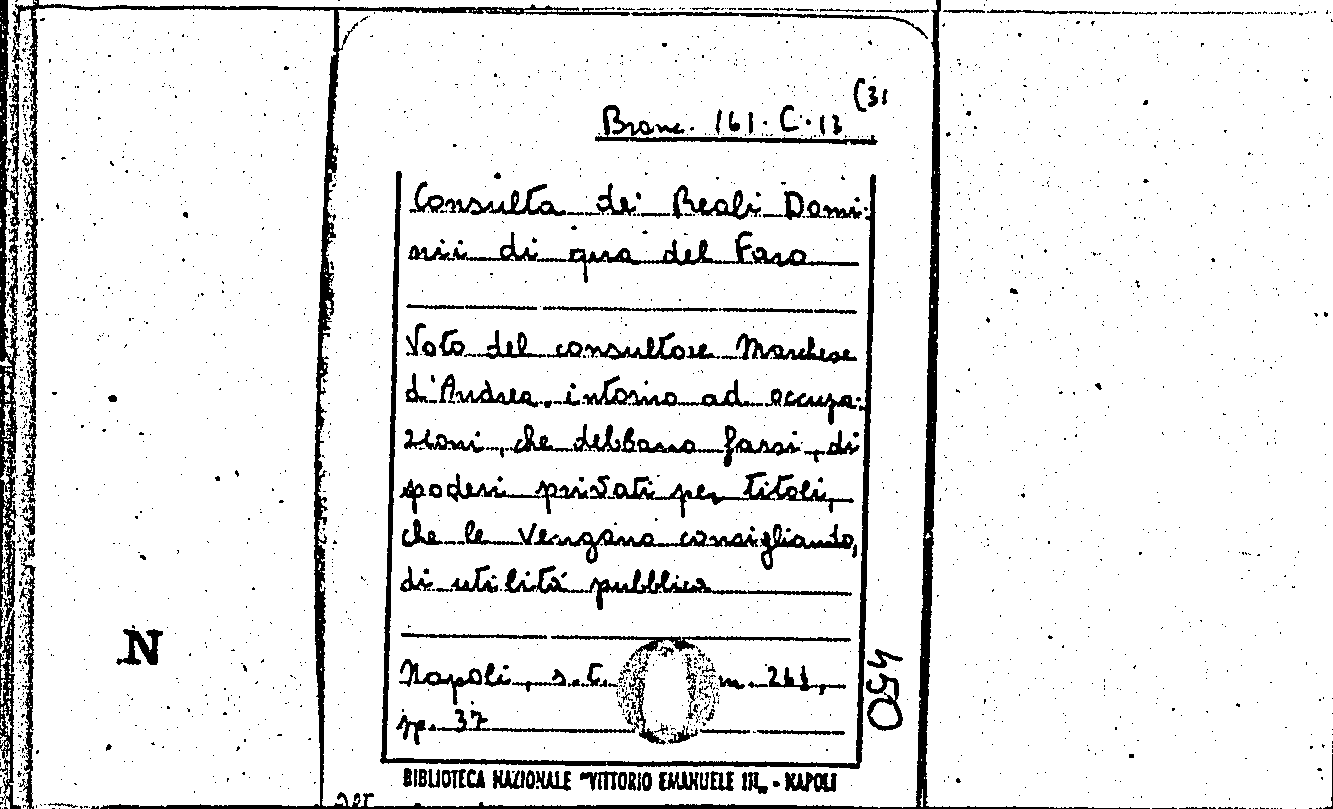 (31
Branc. 161. C. 13
Consulta dei Reali Domi:
nii di qua del Faro
Voto del consultore Marchese
d'Andrea, intorno ad occupa:
zioni, che debbano farsi, di
poderi privati per titoli,
che le vengano consigliando,
di utilità pubblica
Napoli, s.t. in. 261,
pp. 37
450
N
BIBLIOTECA NAZIONALE "VITTORIO EMANUELE III" - NAPOLI